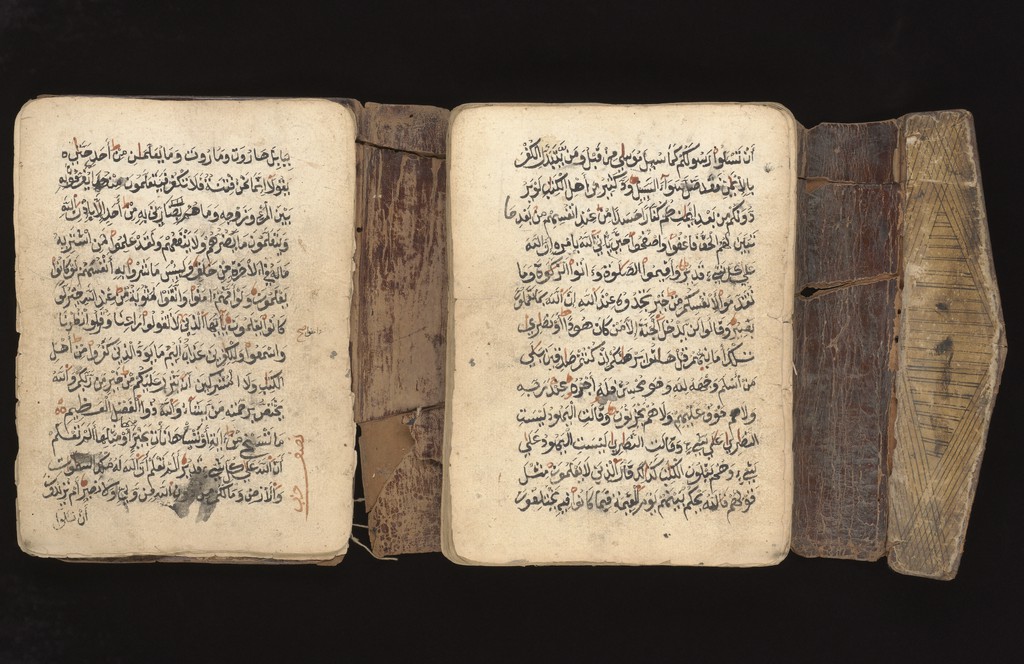 ببابل هاروت وماروت وما يعلمان من احد حتى
يقولا انما نحن فتنة فلا تكفر فيتعلمون منهما ما يفرقون به
بين المرء وزوجه وما هم بضارين به من احد الا باذن الله
ويتعلمون ما يضرهم ولا ينفعهم ولقد علموا لمن اشتريه
ماله في الاخرة من خلاق ولبيس ما شروا به انفسهم لو كانوا
يعلمون ولو انهم امنوا واتقوا لمثوبة من عند الله خير لو
كانوا يعلمون يايها الذين لا تقولوا راعنا وقولوا انظرنا
واسمعوا وللكفرين عذاب اليم ما يود الذين كفروا من اهل
الكتب ولا المشركين ان ينزل عليكم من خير من ربكم والله
يختص برحمته من يشاء والله ذوا الفضل العظيم
ما ننسخ من اية او ننسها نات بخير منها او مثلها الم تعلم
ان الله على كل شيء قدير الم تعلم ان الله له ملك السموت
والارض وما لكم من دون الله من ولي ولا نصير ام تريدون
ان تسالوا
نصف حزب
ان تسلوا رسولكم كما سيل موسى من قبل ومن يتبدل الكفر
بالايمن فقد ضل سواء السبيل ود كثير من اهل الكتب لو ير
دونكم من بعد ايمنكم كفارا حسدا من عند انفسهم من بعد ما
تبين لهم الحق فاعفوا واصفحوا حتى ياتي الله بامره ان الله
على كل شيء قدير واقيموا الصلوة وءاتوا الزكوة وما
تقدموا لانفسكم من خير تجدوه عند الله ان الله بما تعملون
بصير وقالوا لن يدخل الجنة الا من كان هودا او نصرى
تلك امانيهم قل هاتوا برهنكم ان كنتم صدقين بلى
من اسلم وجهه لله وهو محسن فله اجره عند ربه
ولا خوف عليهم ولا هم يحزنون وقالت اليهود ليست
النصرى على شيء وقالت النصرى ليست اليهود على
شيء وهم يتلون الكتب كذلك قال الذين لا يعلمون مثل
قولهم فالله يحكم بينهم يوم القيمة فيما كانوا فيه يختلفون